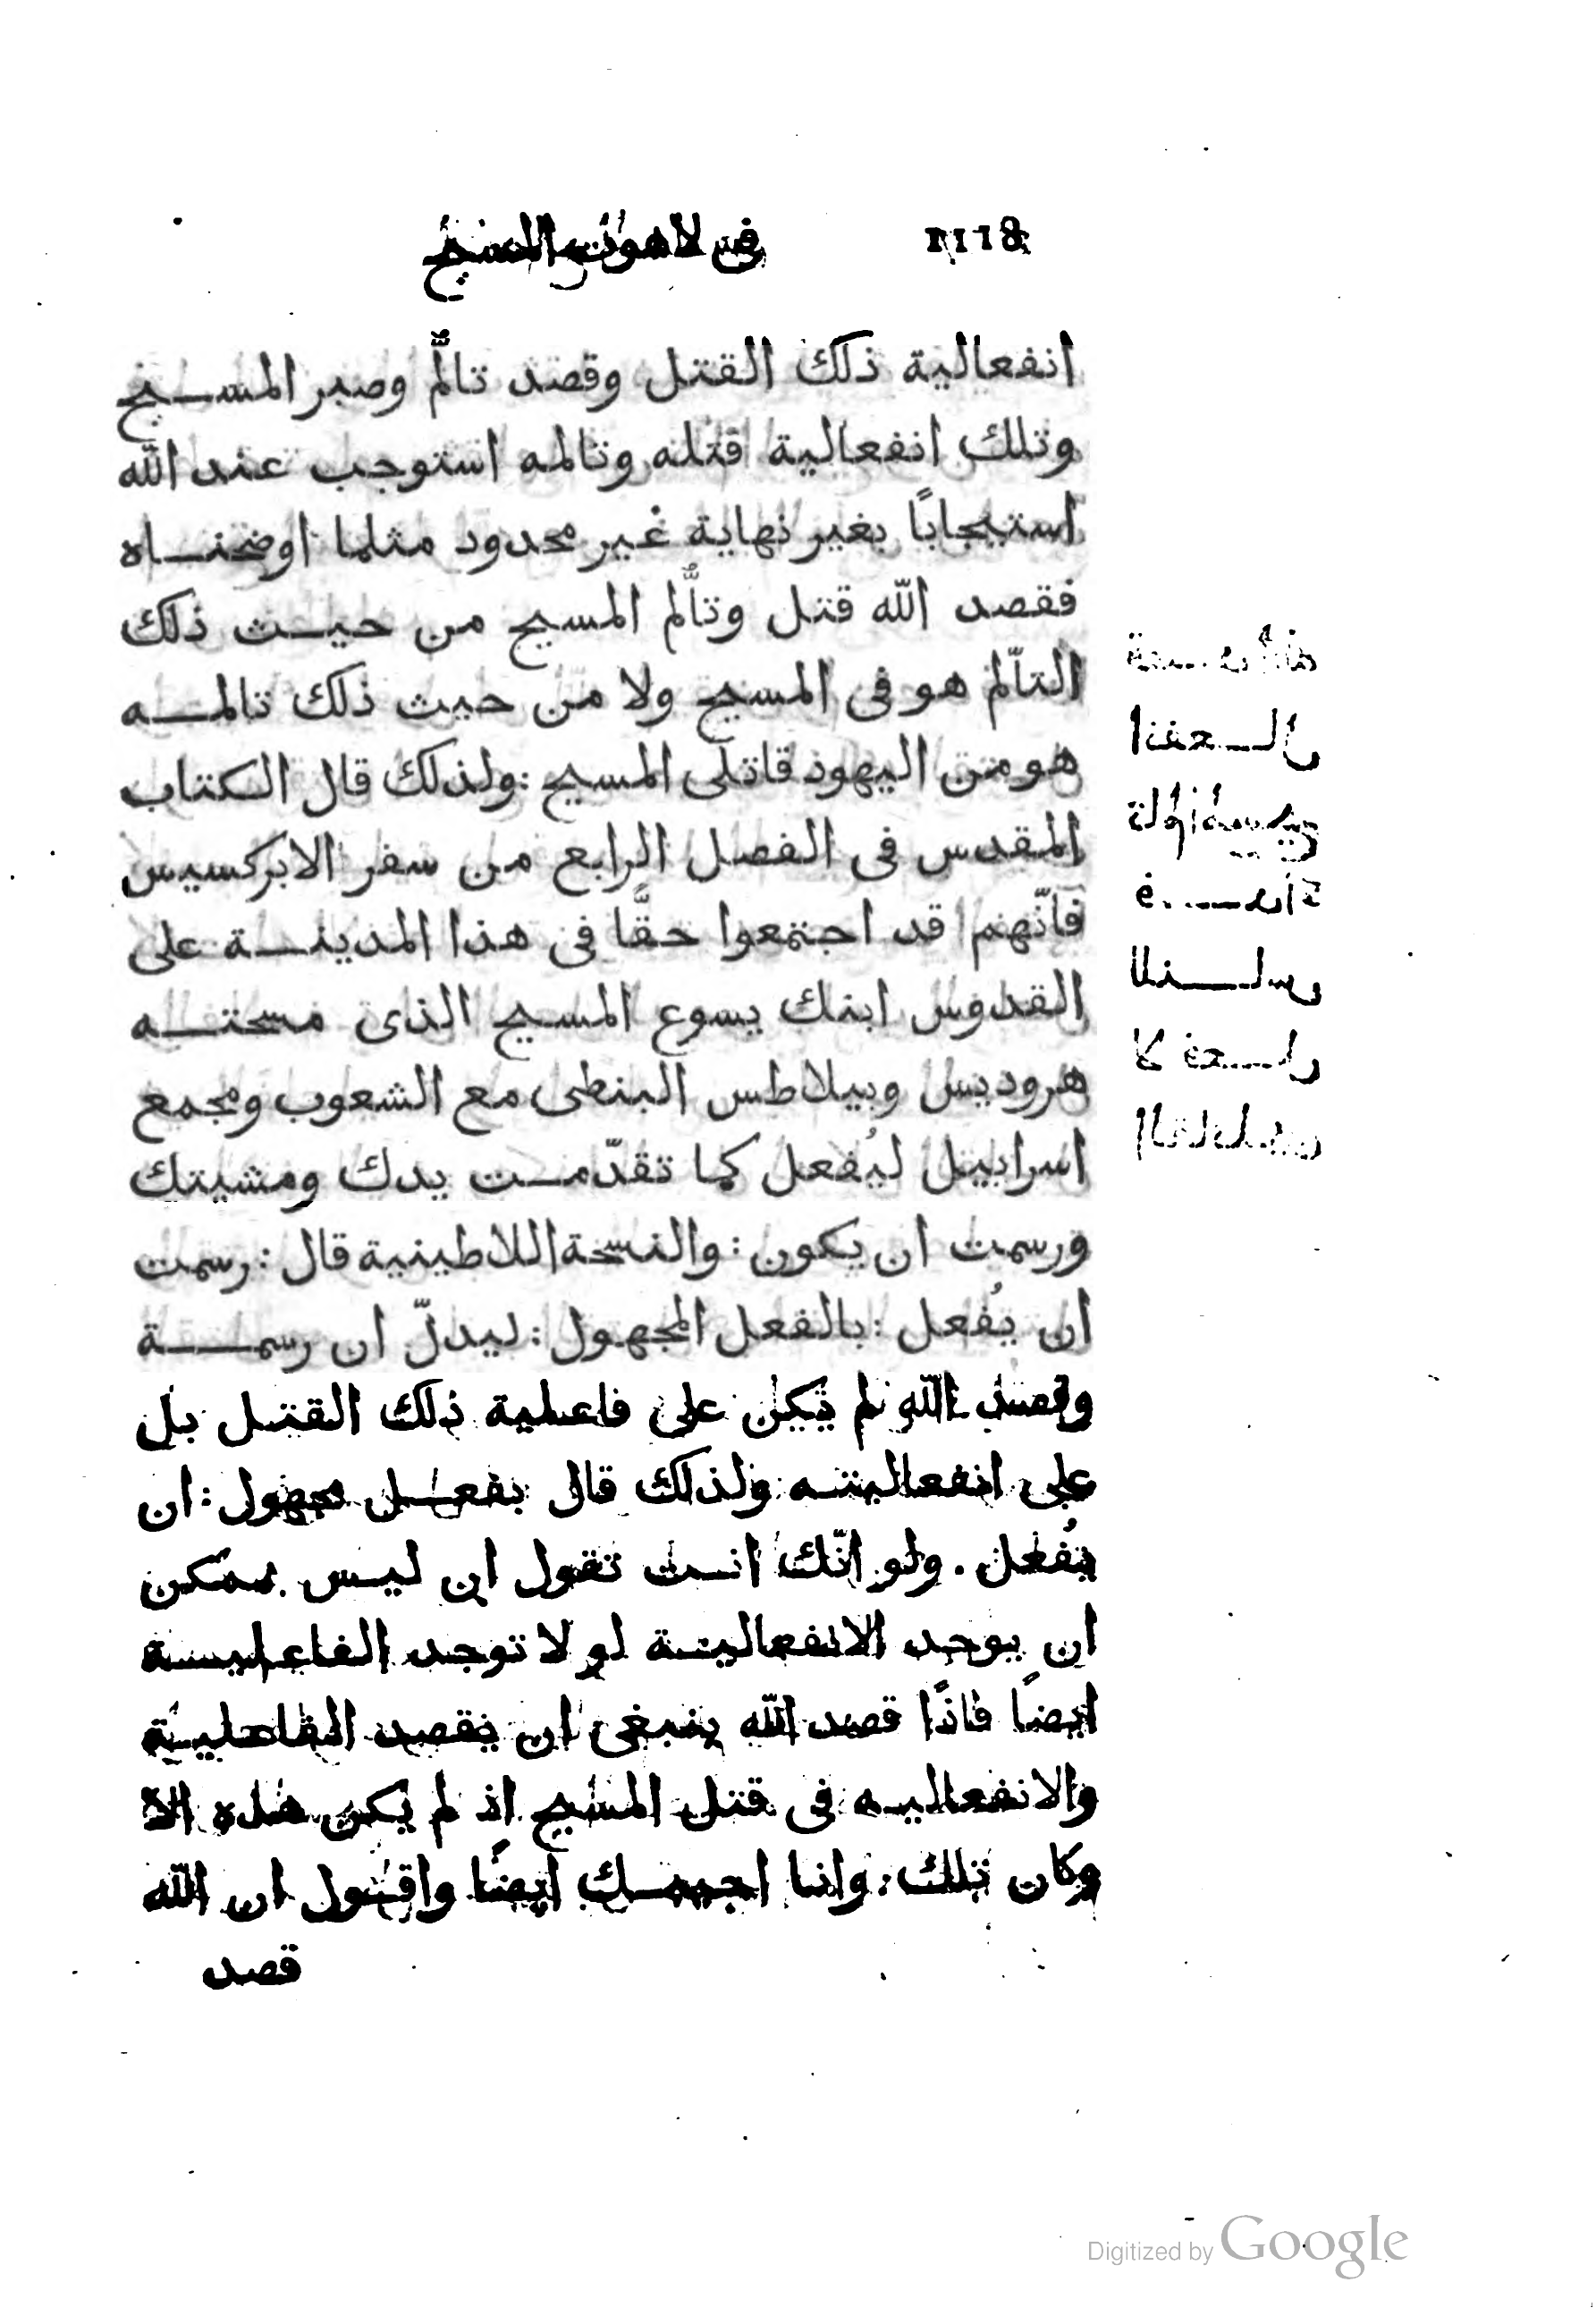 1118 فى لاهوت المسيح
انفعالية ذلك القتل وقصد تالّم وصبر المسيح
وتلك انفعالية قتله وتالمه استوجب عند الله
استيجابًا بغير نهاية غير محدود مثلما اوضحناه
فقصد الله قتل وتالّم المسيح من حيث ذلك
التالّم هو فى المسيح ولا من حيث ذلك تالمه
هو من اليهود قاتلى المسيح : ولذلك قال الكتاب
المقدس فى الفصل الرابع من سفر الابركسيس
فانّهم قد اجتمعوا حقًّا فى هذا المدينة على
القدوس ابنك يسوع المسيح الذى مسحته
هروديس وبيلاطس البنطى مع الشعوب ومجمع
اسراييل ليُفعل كما تقدّمت يدك ومشيتك
ورسمت ان يكون : والنسخة اللاطينية قال : رسمت
ان يُفعل : بالفعل المجهول : ليدلّ ان رسمة
وقصد الله لم تكن على فاعلية ذلك القتل بل
على انفعاليته ولذلك قال بفعل مجهول : ان
يُفعل . ولو انّك انت تقول ان ليس بممكن
ان يوجد الانفعالية لو لا توجد الفاعلية
ايضًا فاذًا قصد الله ينبغى ان يقصد الفاعلية
والانفعاليه فى قتل المسيح اذ لم يكن هذه الا
وكان تلك : وانا اجيبك ايضًا واقول ان الله
قصد
انفعال
تالم المسيح
للناس
لا فعل
الفاعلين
Digitized by Google